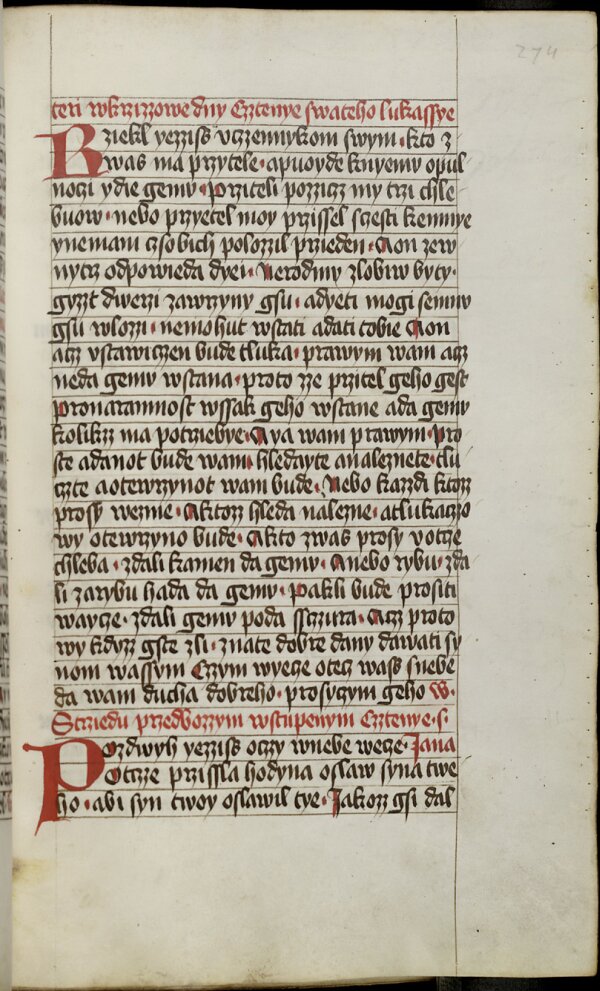 274
teri wkrzizzowe dny Cztenye swateho lukassye
Rziekl yezziss vczennykom swym · kto z
was ma przytele · apuoyde knyemu opul
noczi ydie gemu · Prziteli pozzicz my trzi chle
buow · nebo przyetel moy przissel sczesti kemnye
ynemam czsobich polozil przieden · Aon zew
nytrz odpowieda dyei · Nerodmy zlobiw byty ·
gyzzt dwerzi zawrzyny gsu · adyeti mogi semnu
gsu wlozzi · nemohut wstati adati tobie Aon
acz vstawiczen bude tluka · prawym wam acz
neda gemu wstana · proto zze przitel geho gest
Pronaramnost wssak geho wstane ada gemu
kolikz ma potrziebye · Aya wam prawym · pro
ste adanot bude wam · hledayte analeznete · tlu
czte aotewrzynot wam bude · Nebo kazzdi ktozz
prosy wezme · Aktozz hleda nalezne · atlukaczo
wy otewrzyno bude · Akto zwas prosy votcze
chleba · zdali kamen da gemu · Anebo rybu · zda
li zarybu hada da gemu · Pakli bude prositi
waycze · zdali gemu poda sstzura · Acz proto
wy kdyzz gste zli · znate dobre dany dawati sy
nom wassym Czym wyecze otecz wass snebe
da wam ducha dobreho · prosyczym geho W ·
Strziedu przedbozzym wstupenym Cztenye · s ·
Pozdwyh yezziss oczy wnebe wecze · Jana
Otcze przissla hodyna oslaw syna twe
ho · abi syn twoy oslawil tye · Jakozz gsi dal